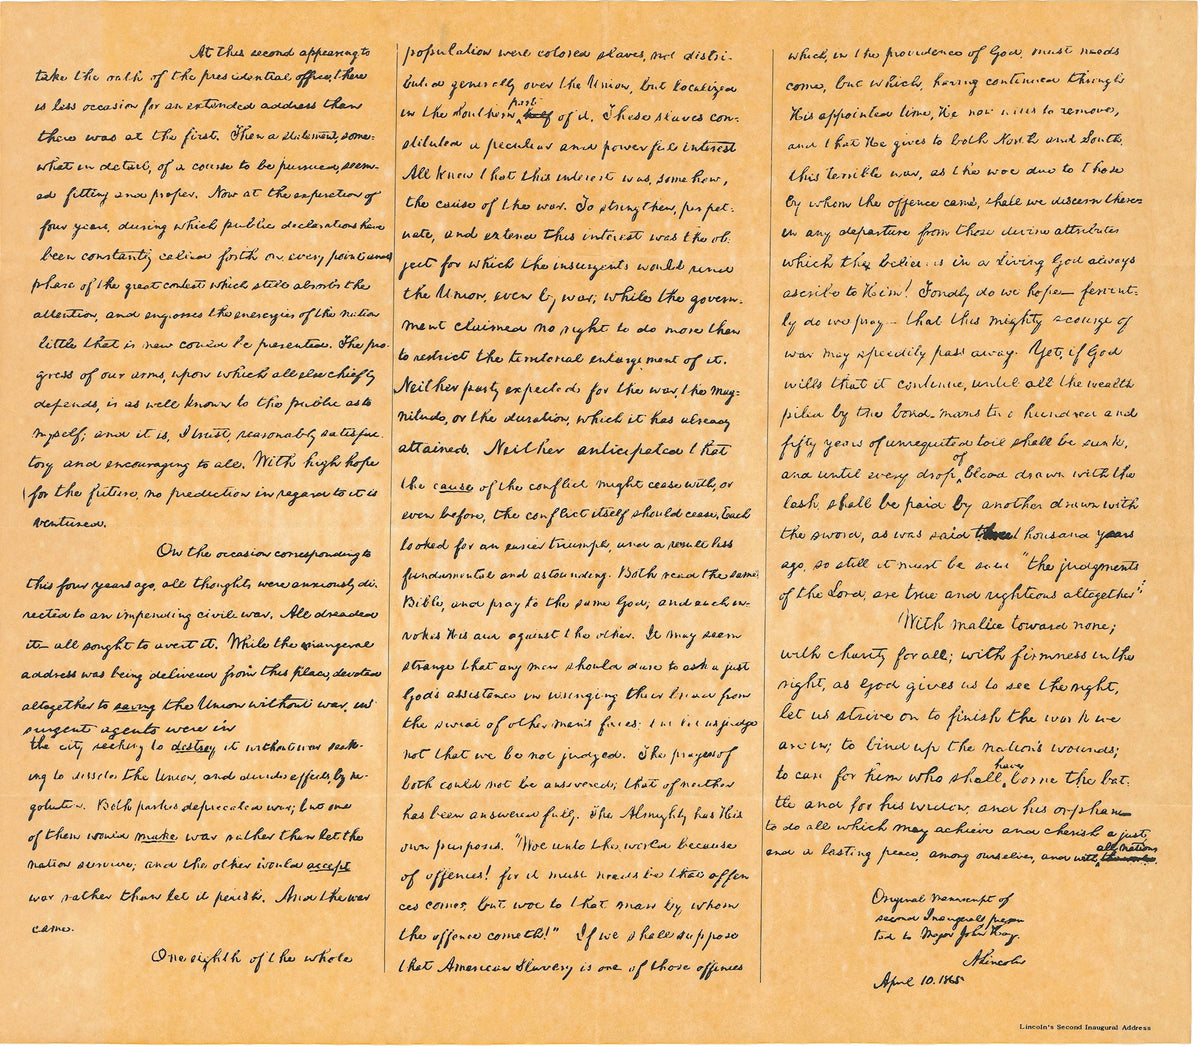 At this second appearing to
take the oath of the presidential office, there
is less occasion for an extended address than
there was at the first. Then a statement, some-
what in detail, of a course to be pursued, seem-
ed fitting and proper. Now at the expiration of
four years, during which public declarations have
been constantly called forth on every point and
phase of the great contest which still absorbs the
attention, and engrosses the energies of the nation
little that is new could be presented. The pro-
gress of our arms, upon which all else chiefly
depends, is as well known to the public as to
myself; and it is, I trust, reasonably satisfac-
tory and encouraging to all. With high hope
for the future, no prediction in regard to it is
ventured.
On the occasion corresponding to
this four years ago, all thoughts were anxiously di-
rected to an impending civil war. All dreaded
it— all sought to avert it. While the inaugeral
address was being delivered from this place, devoted
altogether to saving the Union without war, in-
surgent agents were in
the city seeking to destroy it without war— seek-
ing to dissolve the Union, and divide effects, by ne-
gotiation. Both parties deprecated war; but one
of them would make war rather than let the
nation survive; and the other would accept
war rather than let it perish. And the war
came.
One eighth of the whole
population were colored slaves, not distri-
buted generally over the Union, but localized
in the Southern part half of it. These slaves con-
stituted a peculiar and powerful interest
All knew that this interest was, somehow,
the cause of the war. To strengthen, perpet-
uate, and extend this interest was the ob-
ject for which the insurgents would rend
the Union, even by war; while the govern-
ment claimed no right to do more than
to restrict the territorial enlargement of it.
Neither party expected for the war, the mag-
nitude, or the duration, which it has already
attained. Neither anticipated that
the cause of the conflict might cease with, or
even before, the conflict itself should cease. Each
looked for an easier triumph, and a result less
fundamental and astounding. Both read the same
Bible, and pray to the same God; and each in-
vokes His aid against the other. It may seem
strange that any men should dare to ask a just
God's assistance in wringing their bread from
the sweat of other men's faces; but let us judge
not that we be not judged. The prayers of
both could not be answered; that of neither
has been answered fully. The Almighty has His
own purposes. "Woe unto the world because
of offences! for it must needs be that offen-
ces come; but woe to that man by whom
the offence cometh!" If we shall suppose
that American Slavery is one of those offences
which, in the providence of God, must needs
come, but which, having continued through
His appointed time, He now wills to remove,
and that He gives to both North and South,
this terrible war, as the woe due to those
by whom the offence came, shall we discern there-
in any departure from those divine attributes
which the believers in a living God always
ascribe to Him? Fondly do we hope— fervent-
ly do we pray— that this mighty scourge of
war may speedily pass away. Yet, if God
wills that it continue, until all the wealth
piled by the bond-man's two hundred and
fifty years of unrequited toil shall be sunk,
and until every drop of blood drawn with the
lash, shall be paid by another drawn with
the sword, as was said three thousand years
ago, so still it must be said "the judgments
of the Lord, are true and righteous altogether"
With malice toward none;
with charity for all; with firmness in the
right, as God gives us to see the right,
let us strive on to finish the work we
are in; to bind up the nation's wounds;
to care for him who shall have borne the bat-
tle, and for his widow, and his orphan—
to do all which may achieve and cherish a just,
and a lasting peace, among ourselves, and with all nations. the world.
Original manuscript of
second Inaugeral presen-
ted to Major John Hay.
A. Lincoln
April 10. 1865
Lincoln's Second Inaugural Address